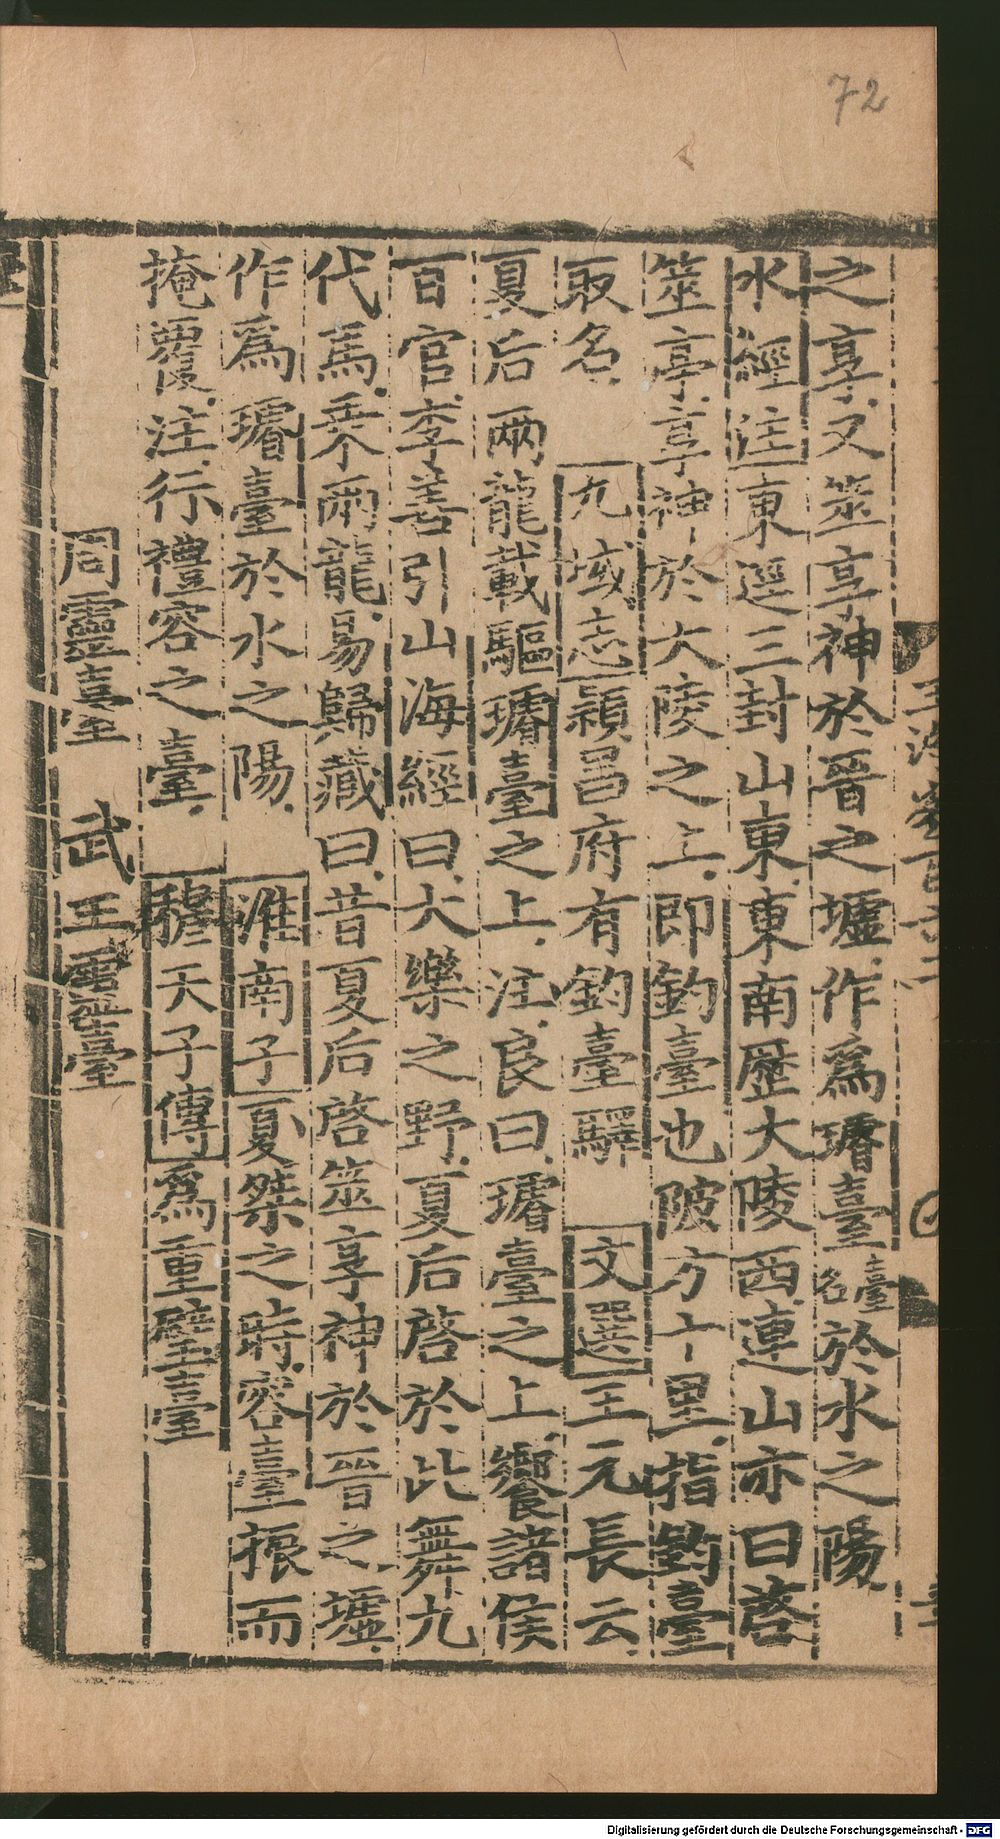 72
之享又筮享神於晉之墟作爲璿臺臺名於水之陽
水經注東逕三封山東東南歷大陵西連山亦曰啓
筮亭享神於大陵之上即鈞臺也陂方十里指鈞臺
取名 九域志潁昌府有鈞臺驛 文選王元長云
夏后兩龍載驅璿臺之上注良曰璿臺之上饗諸侯
百官李善引山海經曰大樂之野夏后啓於此舞九
代馬乘兩龍易歸藏曰昔夏后啓筮享神於晉之墟
作爲璿臺於水之陽 淮南子夏桀之時容臺振而
掩覆注行禮容之臺 穆天子傳爲重壁臺
周靈臺 武王靈臺
Digitalisierung gefördert durch die Deutsche Forschungsgemeinschaft - DFG